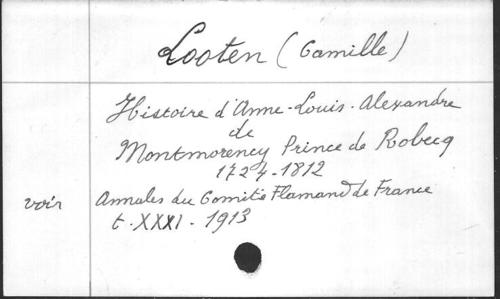 Looten (Camille)
Histoire d'Anne-Louis-Alexandre
de
Montmorency Prince de Robecq
1724-1812
voir Annales du Comité Flamand de France
t. XXXI - 1913